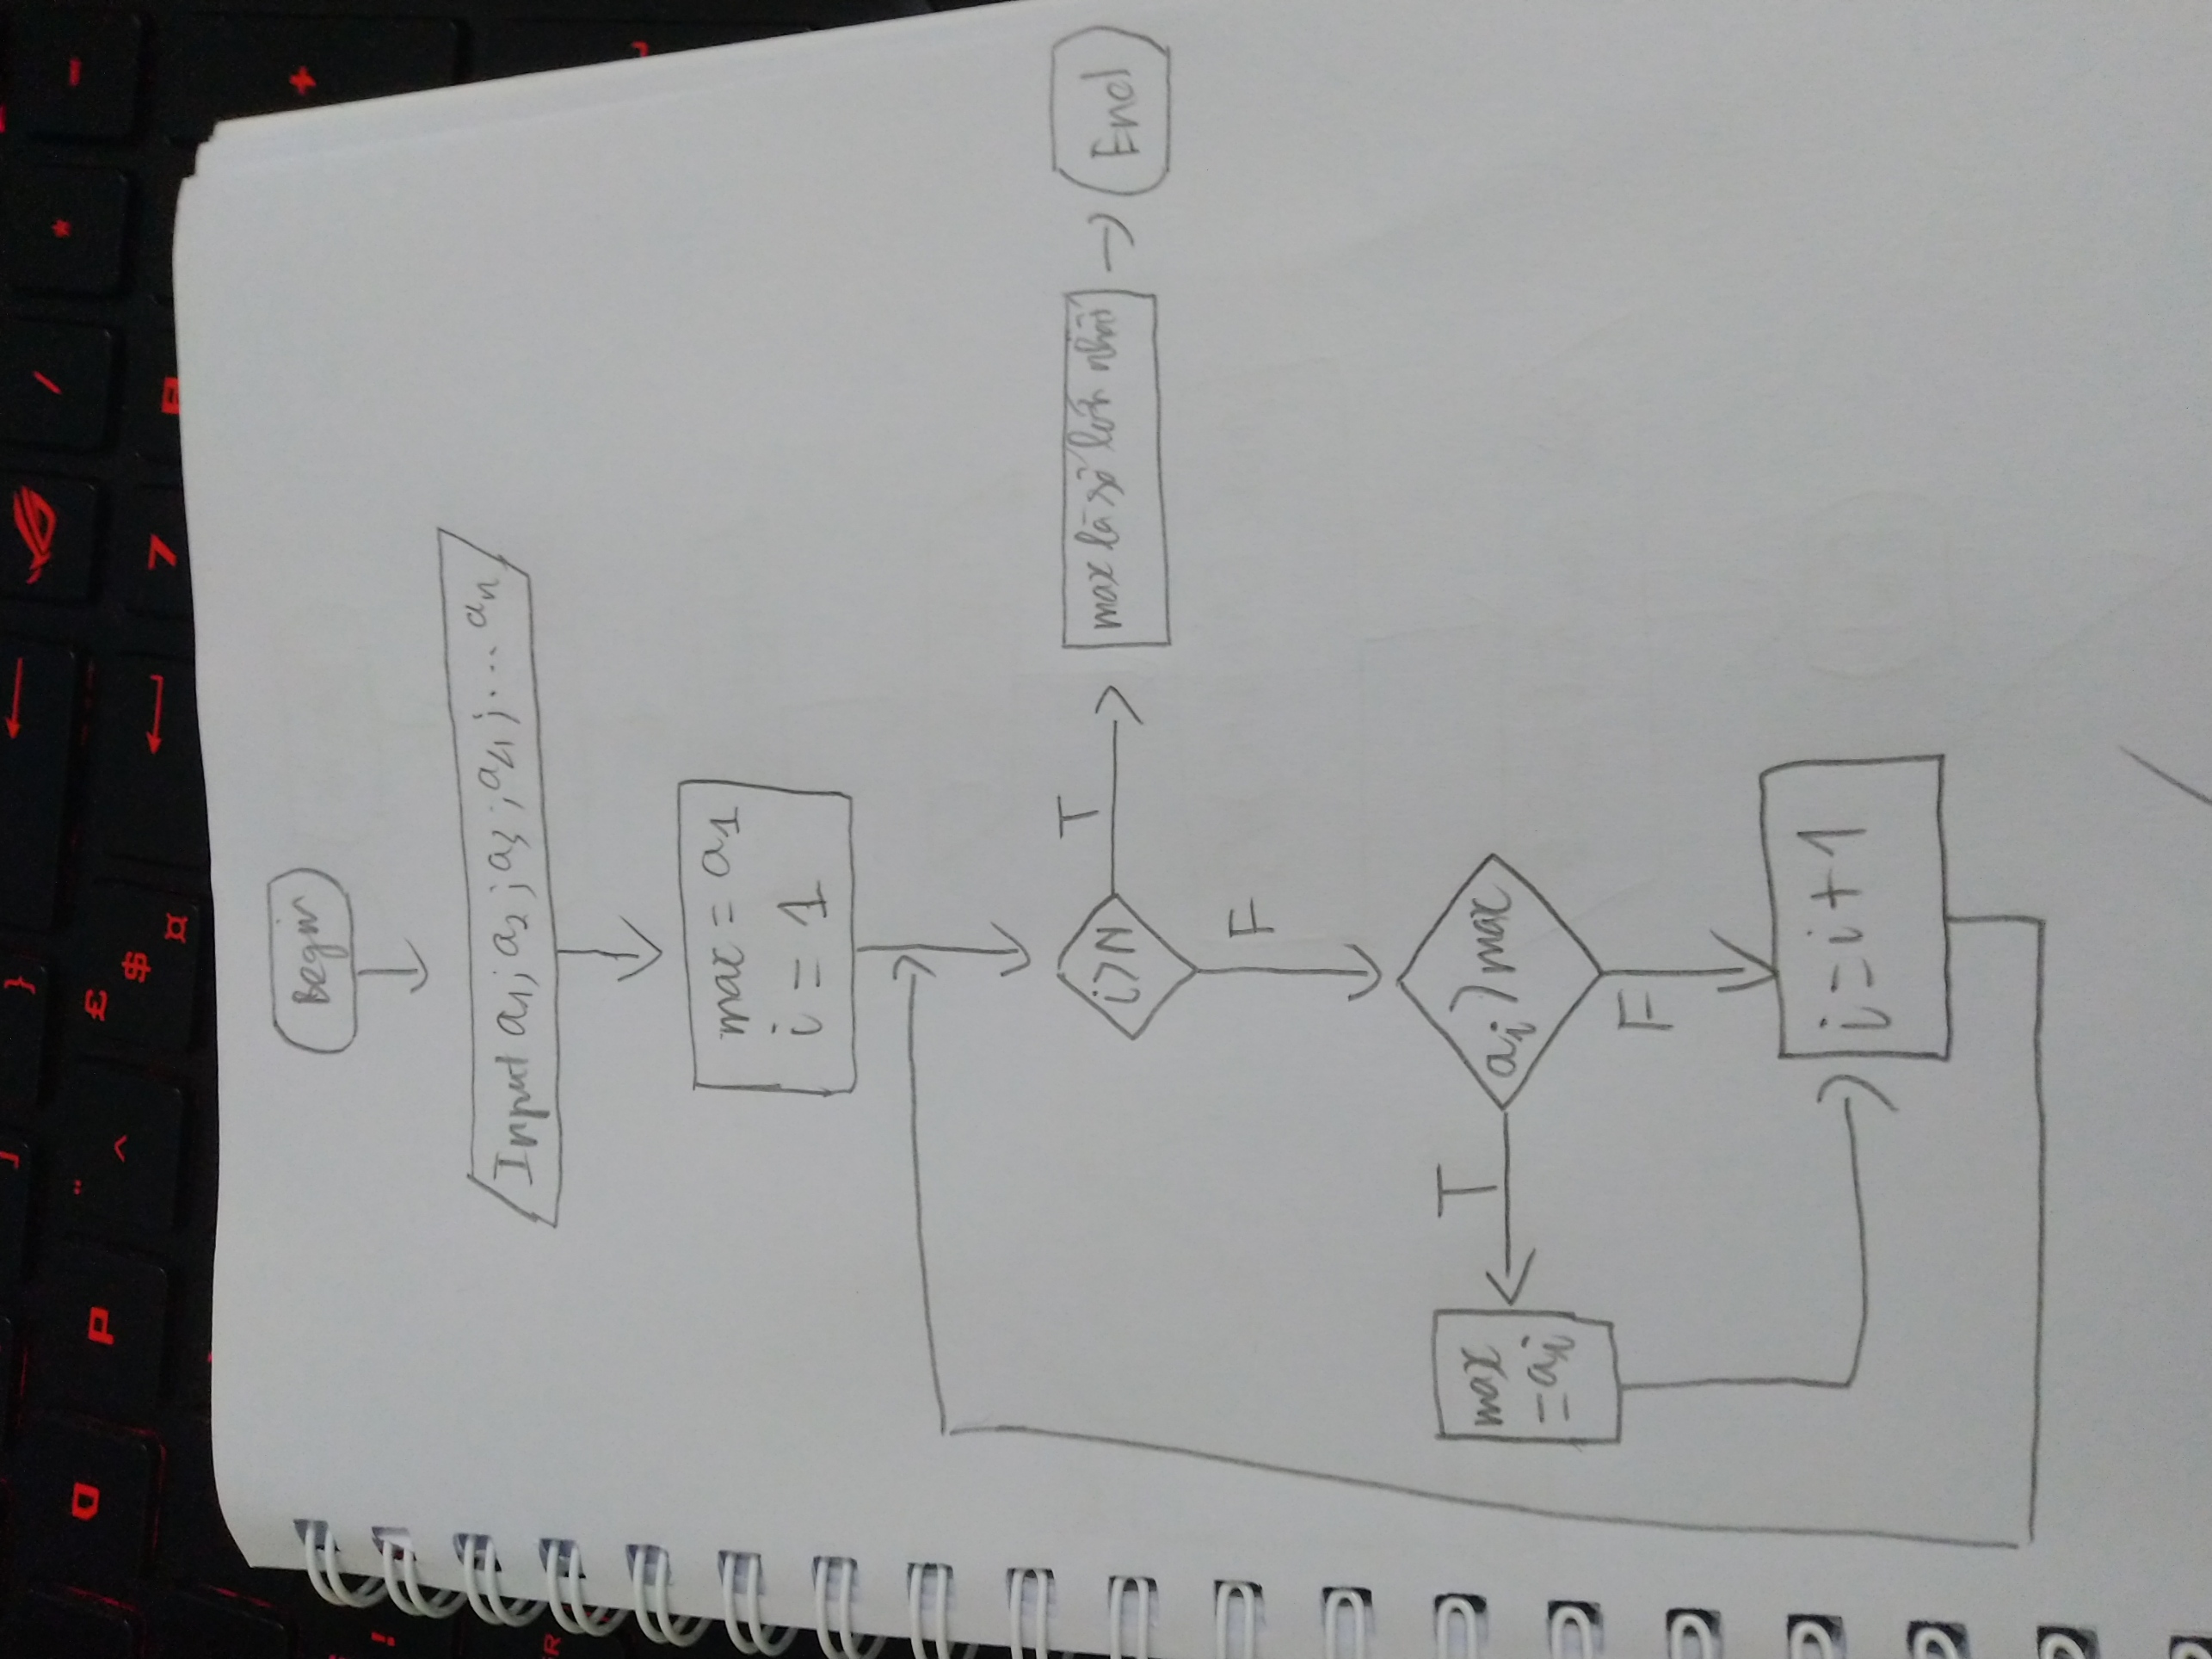 Begin
Input a₁; a₂; a₃; a₄; ... aₙ
max = a₁
i = 1
i > N
T
max là số lớn nhất
End
F
aᵢ > max
T
max
= aᵢ
F
i = i + 1